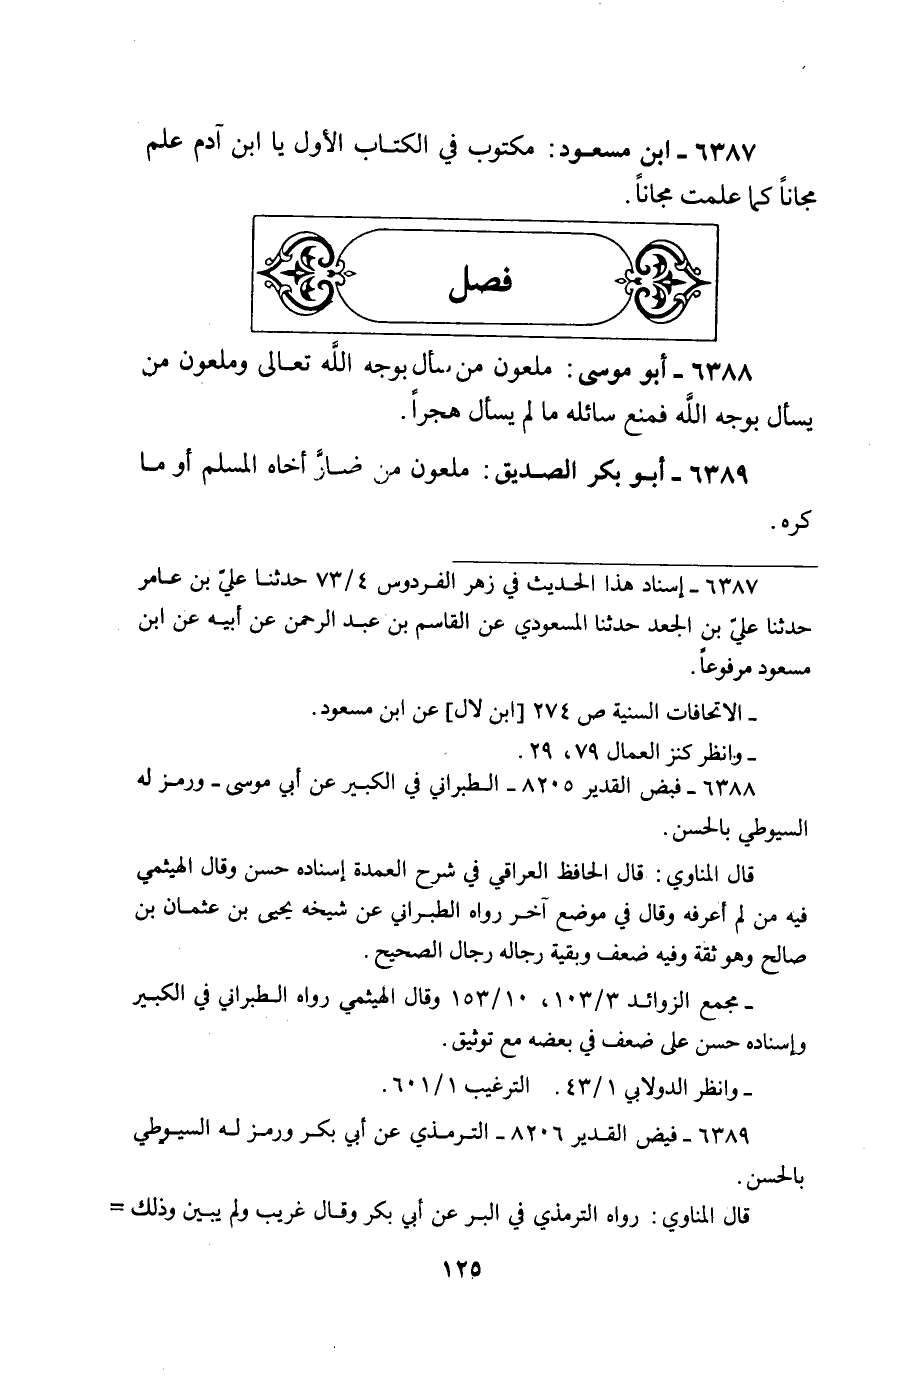 ٦٣٨٧ ـ ابن مسعود: مكتوب في الكتاب الأول يا ابن آدم علم
مجاناً كما علمت مجاناً.
فصل
٦٣٨٨ ـ أبو موسى: ملعون من سأل بوجه اللَّه تعالى وملعون من
يسأل بوجه اللَّه فمنع سائله ما لم يسأل هجراً.
٦٣٨٩ ـ أبو بكر الصديق: ملعون من ضارَّ أخاه المسلم أو ما
كره.
٦٣٨٧ ـ إسناد هذا الحديث في زهر الفردوس ٧٣/٤ حدثنا عليّ بن عامر
حدثنا عليّ بن الجعد حدثنا المسعودي عن القاسم بن عبد الرحمن عن أبيه عن ابن
مسعود مرفوعاً.
ـ الاتحافات السنية ص ٢٧٤ [ابن لال] عن ابن مسعود.
ـ وانظر كنز العمال ٧٩، ٢٩.
٦٣٨٨ ـ فيض القدير ٨٢٠٥ ـ الطبراني في الكبير عن أبي موسى ـ ورمز له
السيوطي بالحسن.
قال المناوي: قال الحافظ العراقي في شرح العمدة إسناده حسن وقال الهيثمي
فيه من لم أعرفه وقال في موضع آخر رواه الطبراني عن شيخه يحيى بن عثمان بن
صالح وهو ثقة وفيه ضعف وبقية رجاله رجال الصحيح.
ـ مجمع الزوائد ١٠٣/٣، ١٥٣/١٠ وقال الهيثمي رواه الطبراني في الكبير
وإسناده حسن على ضعف في بعضه مع توثيق.
ـ وانظر الدولابي ٤٣/١. الترغيب ٦٠١/١.
٦٣٨٩ ـ فيض القدير ٨٢٠٦ ـ الترمذي عن أبي بكر ورمز له السيوطي
بالحسن.
قال المناوي: رواه الترمذي في البر عن أبي بكر وقال غريب ولم يبين وذلك =
١٢٥